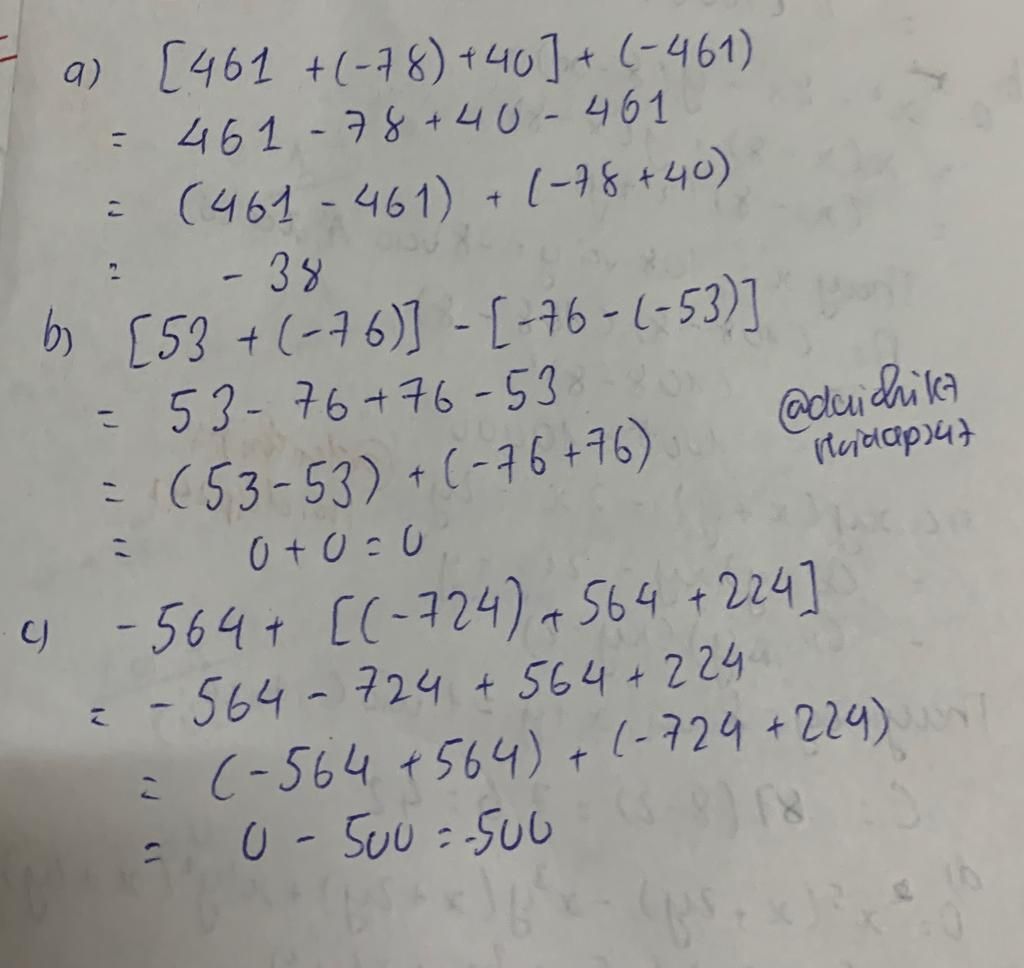 a) [461 + (-78) + 40] + (-461)
= 461 - 78 + 40 - 461
= (461 - 461) + (-78 + 40)
= - 38
b) [53 + (-76)] - [-76 - (-53)]
= 53 - 76 + 76 - 53
= (53 - 53) + (-76 + 76)
= 0 + 0 = 0
c) - 564 + [(-724) + 564 + 224]
= - 564 - 724 + 564 + 224
= (-564 + 564) + (-724 + 224)
= 0 - 500 = -500